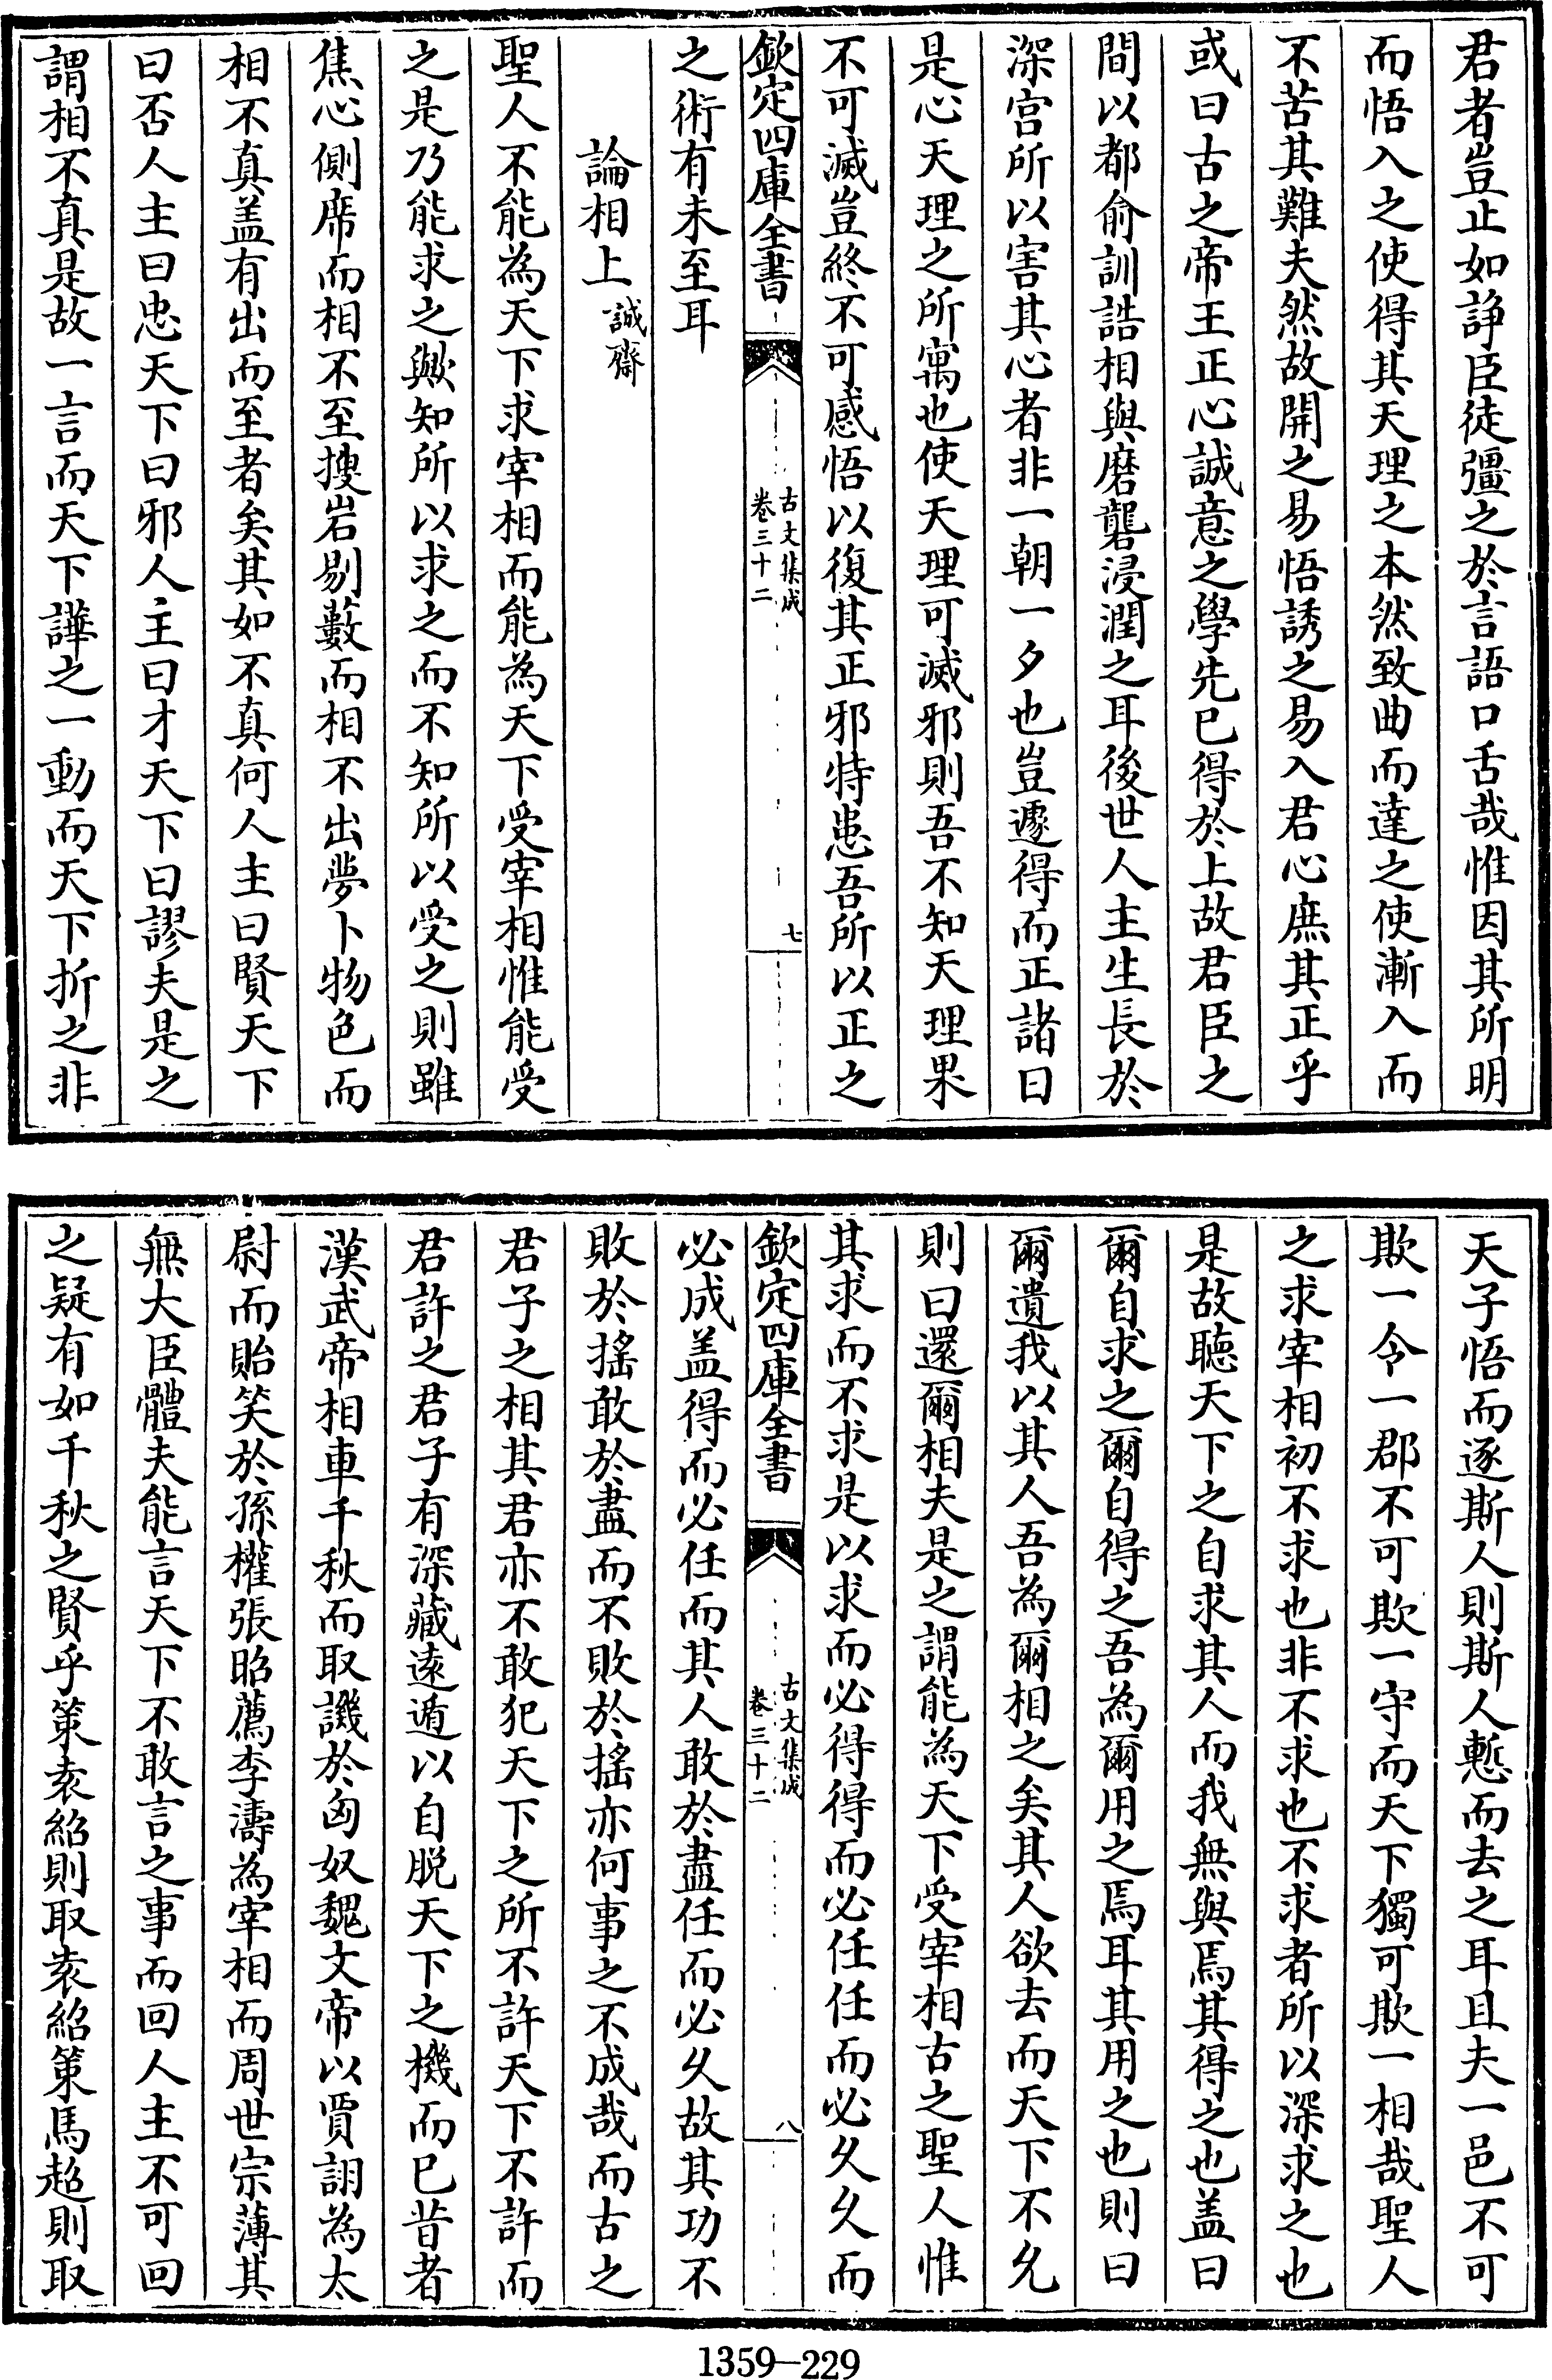 君者豈止如諍臣徒彊之於言語口舌哉惟因其所明
而悟入之使得其天理之本然致曲而達之使漸入而
不苦其難夫然故開之易悟誘之易入君心庶其正乎
或曰古之帝王正心誠意之學先已得於上故君臣之
間以都俞訓誥相與磨礱浸潤之耳後世人主生長於
深宫所以害其心者非一朝一夕也豈遽得而正諸曰
是心天理之所寓也使天理可滅邪則吾不知天理果
不可滅豈終不可感悟以復其正邪特患吾所以正之
欽定四庫全書
古文集成
卷三十二
七
之術有未至耳
論相上 誠齋
聖人不能為天下求宰相而能為天下受宰相惟能受
之是乃能求之歟知所以求之而不知所以受之則雖
焦心側席而相不至搜岩剔藪而相不出夢卜物色而
相不真盖有出而至者矣其如不真何人主曰賢天下
曰否人主曰忠天下曰邪人主曰才天下曰謬夫是之
謂相不真是故一言而天下譁之一動而天下折之非
天子悟而逐斯人則斯人慙而去之耳且夫一邑不可
欺一令一郡不可欺一守而天下獨可欺一相哉聖人
之求宰相初不求也非不求也不求者所以深求之也
是故聽天下之自求其人而我無與焉其得之也盖曰
爾自求之爾自得之吾為爾用之焉耳其用之也則曰
爾遺我以其人吾為爾相之矣其人欲去而天下不允
則曰還爾相夫是之謂能為天下受宰相古之聖人惟
其求而不求是以求而必得得而必任任而必久久而
欽定四庫全書
古文集成
卷三十二
八
必成盖得而必任而其人敢於盡任而必久故其功不
敗於搖敢於盡而不敗於搖亦何事之不成哉而古之
君子之相其君亦不敢犯天下之所不許天下不許而
君許之君子有深藏遠遁以自脱天下之機而已昔者
漢武帝相車千秋而取譏於匈奴魏文帝以賈詡為太
尉而貽笑於孫權張昭薦李濤為宰相而周世宗薄其
無大臣體夫能言天下不敢言之事而回人主不可回
之疑有如千秋之賢乎策袁紹則取袁紹策馬超則取
1359—229